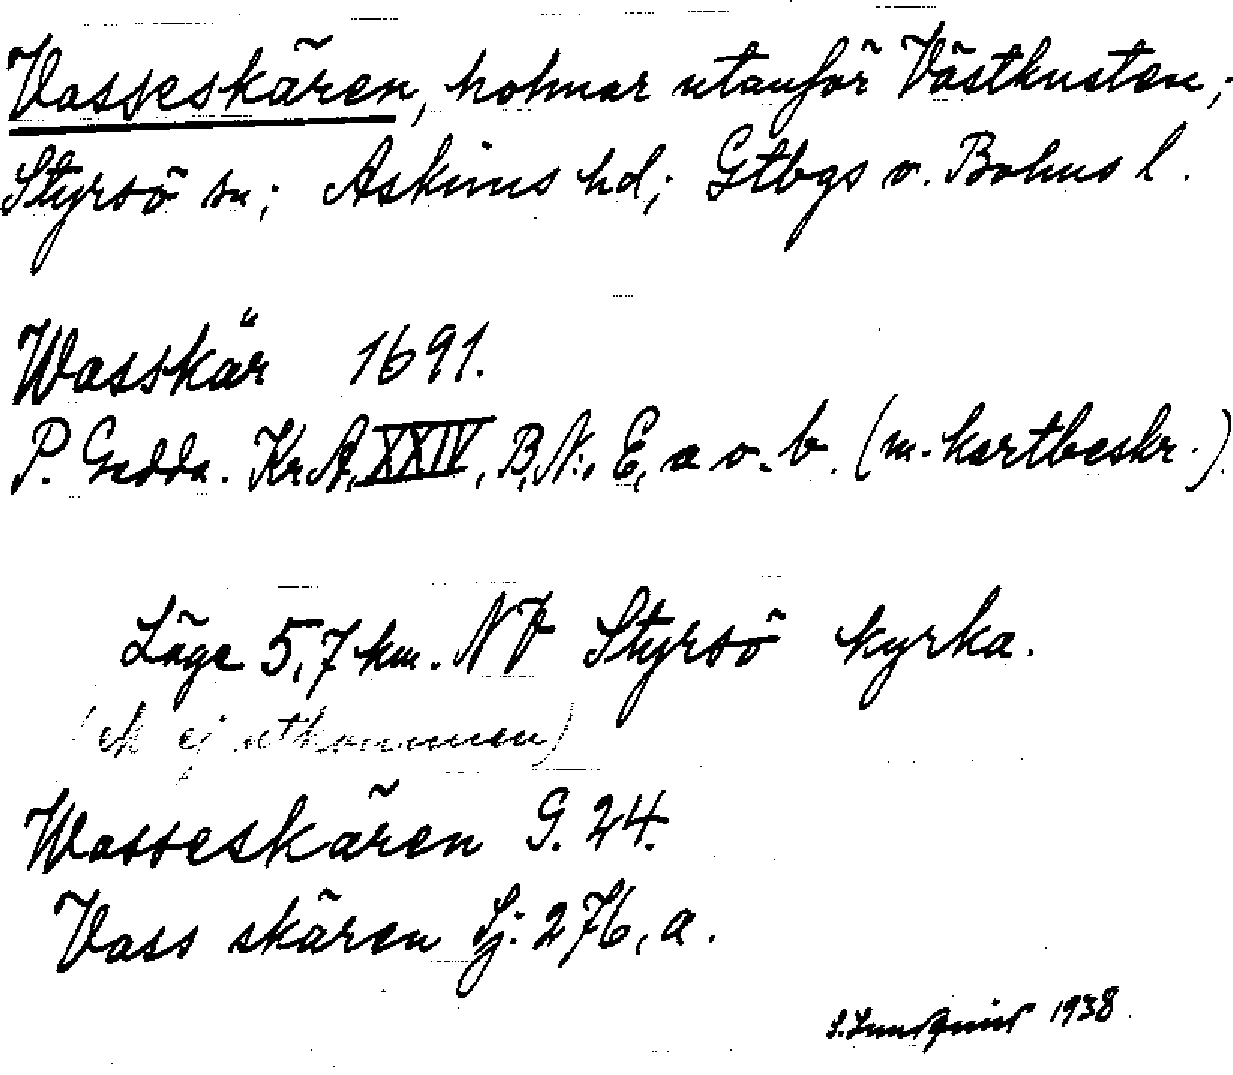 Vasseskären, holmar utanför Västkusten;
Styrsö sn; Askims hd; Gtbgs o. Bohus l.
Wasskär 1691.
P. Gedda. Kr.A. XXIV, B, N:, E, a o. b. (m. kartbeskr.)
Läge 5,7 km. NV Styrsö kyrka.
(ek ej utkommen)
Wasseskären G. 24.
Vass skären Sj. 276, a.
S. Lundquist 1938.